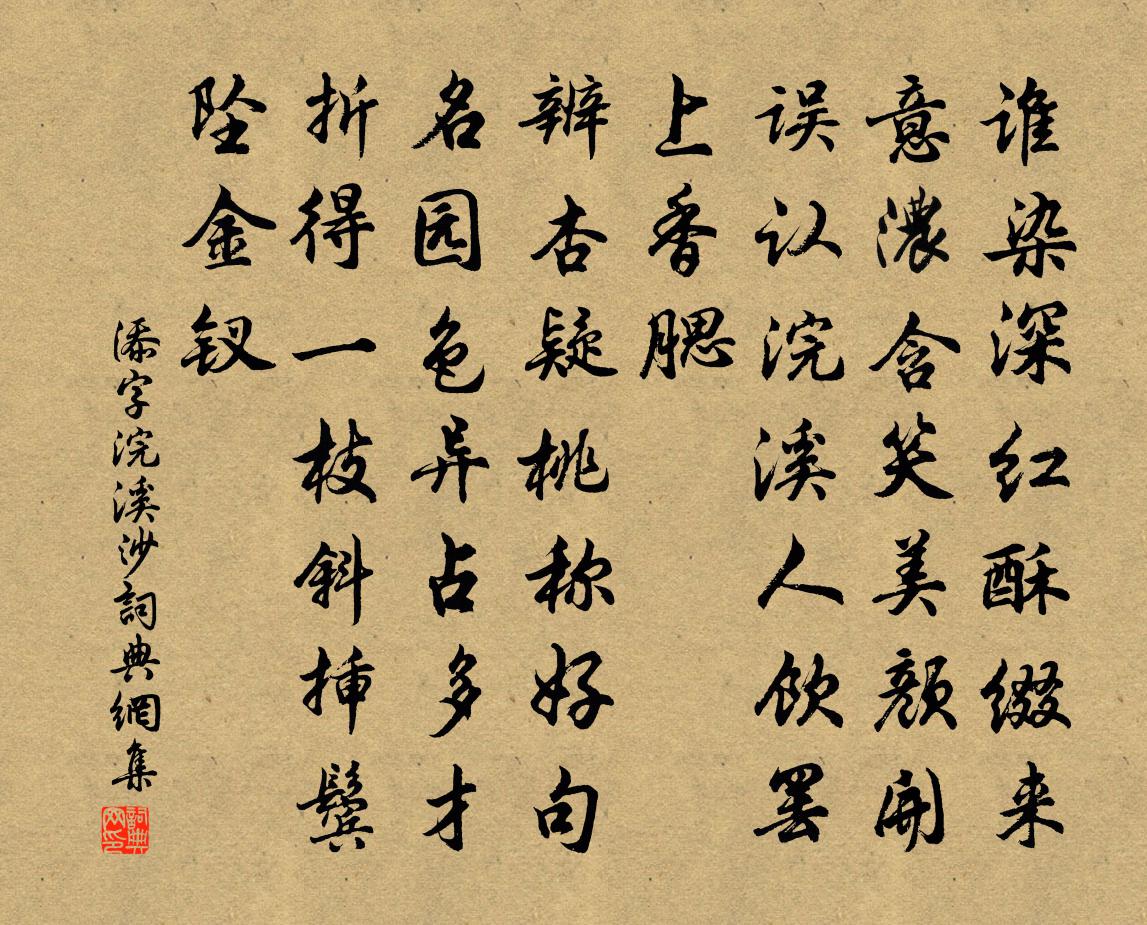 谁染深红酥缀来
意濃含笑美颜開
误认浣溪人饮罢
上香腮
辨杏疑桃称好句
名园色异占多才
折得一枝斜揷鬓
坠金钗
添字浣溪沙詞典網集
詞典
网印